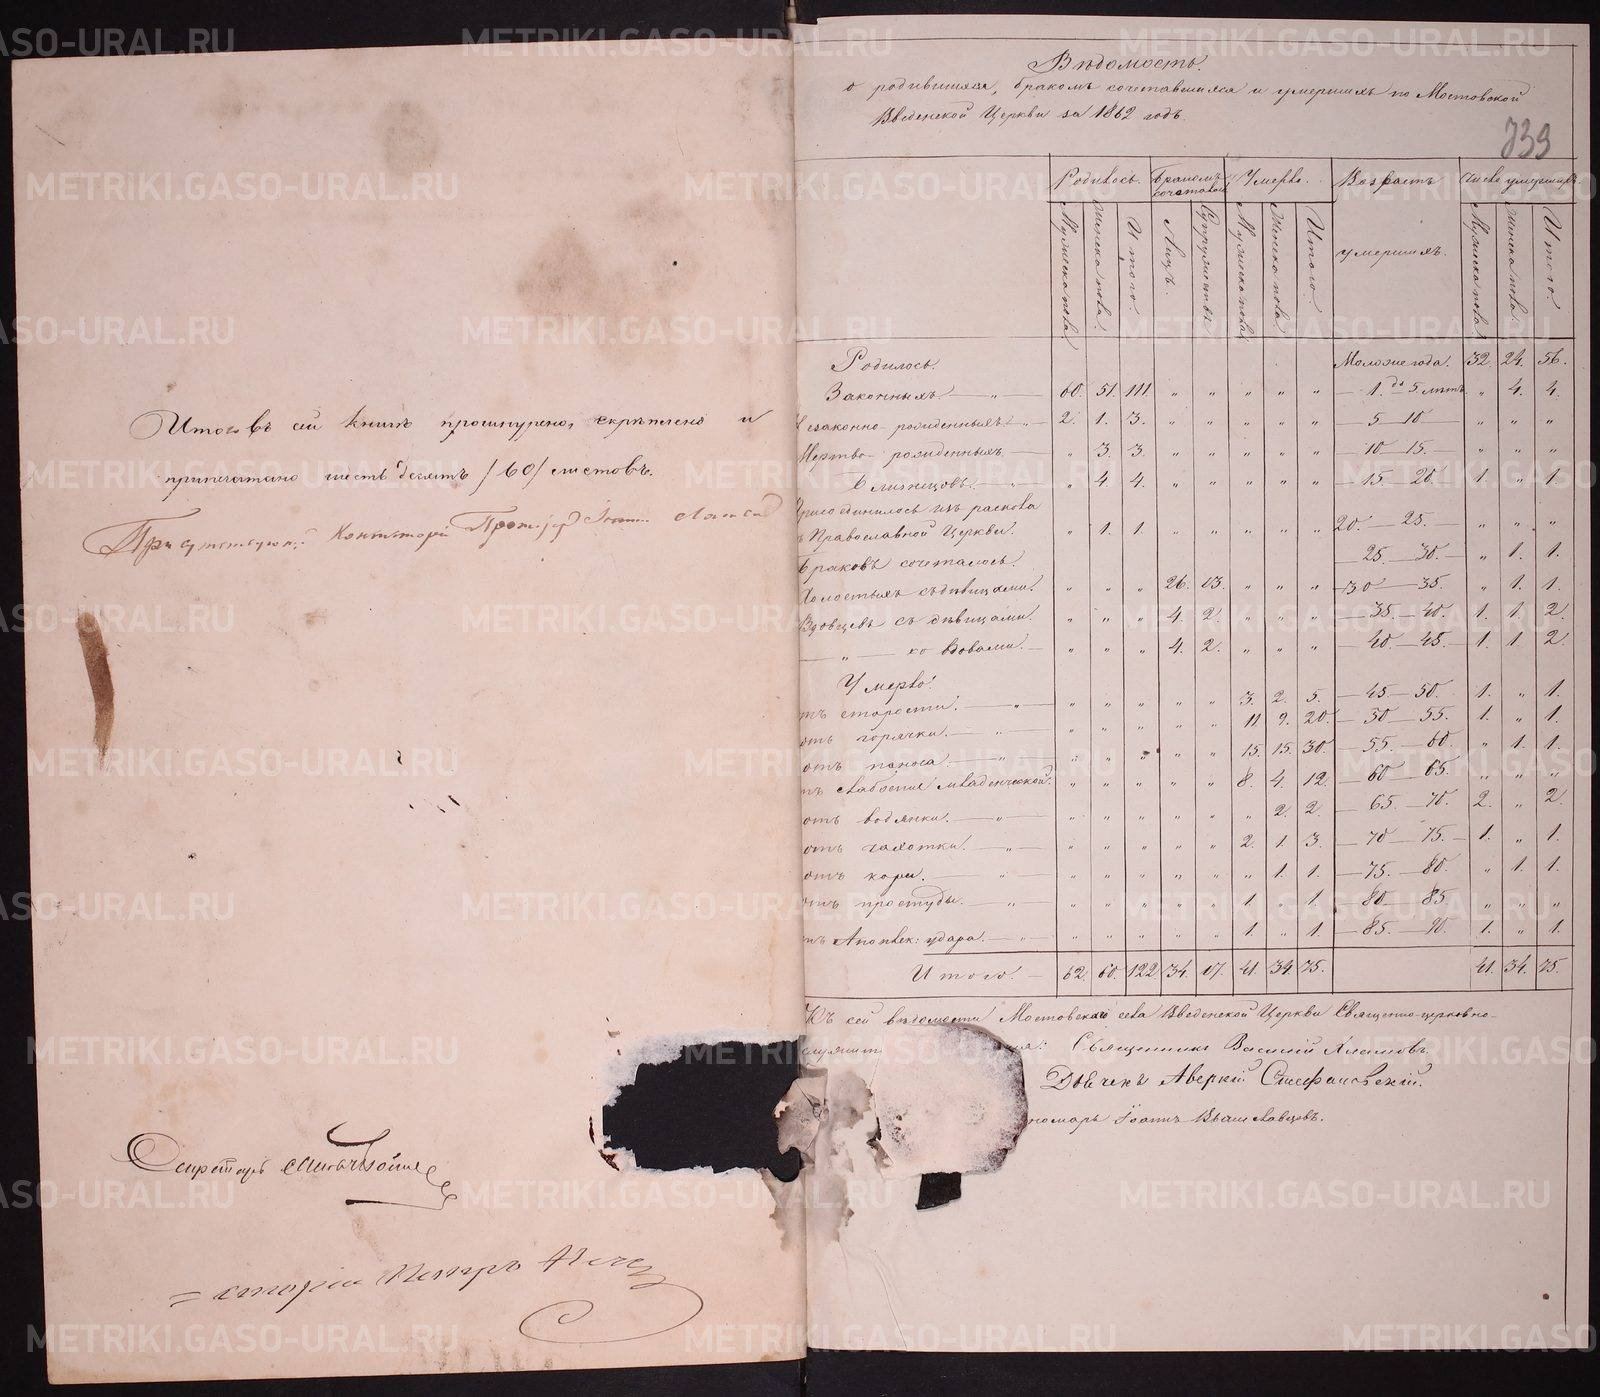 Итого въ сей книгѣ прошнурено, скрѣплено и
припечатано шесть десятъ /60/ листовъ.
Присутствующій Конисторіи
Секретарь
Петръ
Вѣдомость.
о родившихся, бракомъ сочетавшихся и умершихъ по Мостовской
Введенской Церкви за 1862 годъ.
739
Родилось. Бракомъ сочеталось Умерло. Возрастъ умершихъ. Число умершихъ.
Мужеска пола. Женска пола. Итого. Лицъ. Супружествъ. Мужеска пола. Женска пола. Итого. Мужеска пола. Женска пола. Итого.
Родилось. Моложе года. 32. 24. 56.
Законныхъ — „ — 60. 51. 111. „ „ „ „ „ — 1. до 5 лѣтъ „ 4. 4.
Незаконно-рожденныхъ — „ 2. 1. 3. „ „ „ „ „ — 5 — 10 — „ „ „
Мертво-рожденныхъ. — „ 3. 3. „ „ „ „ „ — 10 — 15. — „ „ „
Близнецовъ. — „ — „ 4. 4. „ „ „ „ „ — 15. — 20. 1. „ 1.
Присоединилось изъ раскола
къ Православной Церкви. „ 1. 1. „ „ „ „ „ 20. — 25. — „ „ „
Браковъ сочеталось. — 25 — 30. — „ 1. 1.
Холостыхъ съ дѣвицами. „ „ „ 26. 13. „ „ „ — 30 — 35. „ 1. 1.
Вдовцевъ съ дѣвицами. „ „ „ 4. 2. „ „ „ — 35. — 40. 1. 1. 2.
— „ — со вдовами. — „ „ „ 4. 2. „ „ „ — 40. — 45. 1. 1. 2.
Умерло: — 45 — 50. 1. „ 1.
отъ старости. — „ — „ „ „ „ „ 3. 2. 5.
отъ горячки. — „ — „ „ „ „ „ 11. 9. 20. — 50 — 55. 1. „ 1.
отъ поноса. — „ — „ „ „ „ „ 15. 15. 30. — 55. — 60. „ 1. 1.
отъ слабости младенческой. „ „ „ „ „ 8. 4. 12. — 60 — 65. „ „ „
отъ водянки. — „ — „ „ „ „ „ „ 2. 2. — 65. — 70. 2. „ 2.
отъ чахотки. — „ — „ „ „ „ „ 2. 1. 3. — 70 — 75. — 1. „ 1.
отъ кори. — „ — „ „ „ „ „ „ 1. 1. — 75. — 80. „ 1. 1.
отъ простуды. — „ — „ „ „ „ „ 1. „ 1. — 80. — 85. „ „ „
отъ Апоплек: удара. — „ — „ „ „ „ „ 1. „ 1. — 85. — 90. 1. „ 1.
Итого. — 62. 60. 122 34. 17. 41. 34. 75. 41. 34. 75.
Къ сей вѣдомости Мостовскаго села Введенской Церкви Священно-церковно-
служит Священникъ Василій
Дьячекъ Аверкій Стефановскій.
номарь Іоаннъ Вышеславцовъ.
METRIKI.GASO-URAL.RU